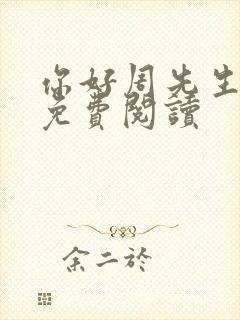 你好周先生
免費閱讀
余二於